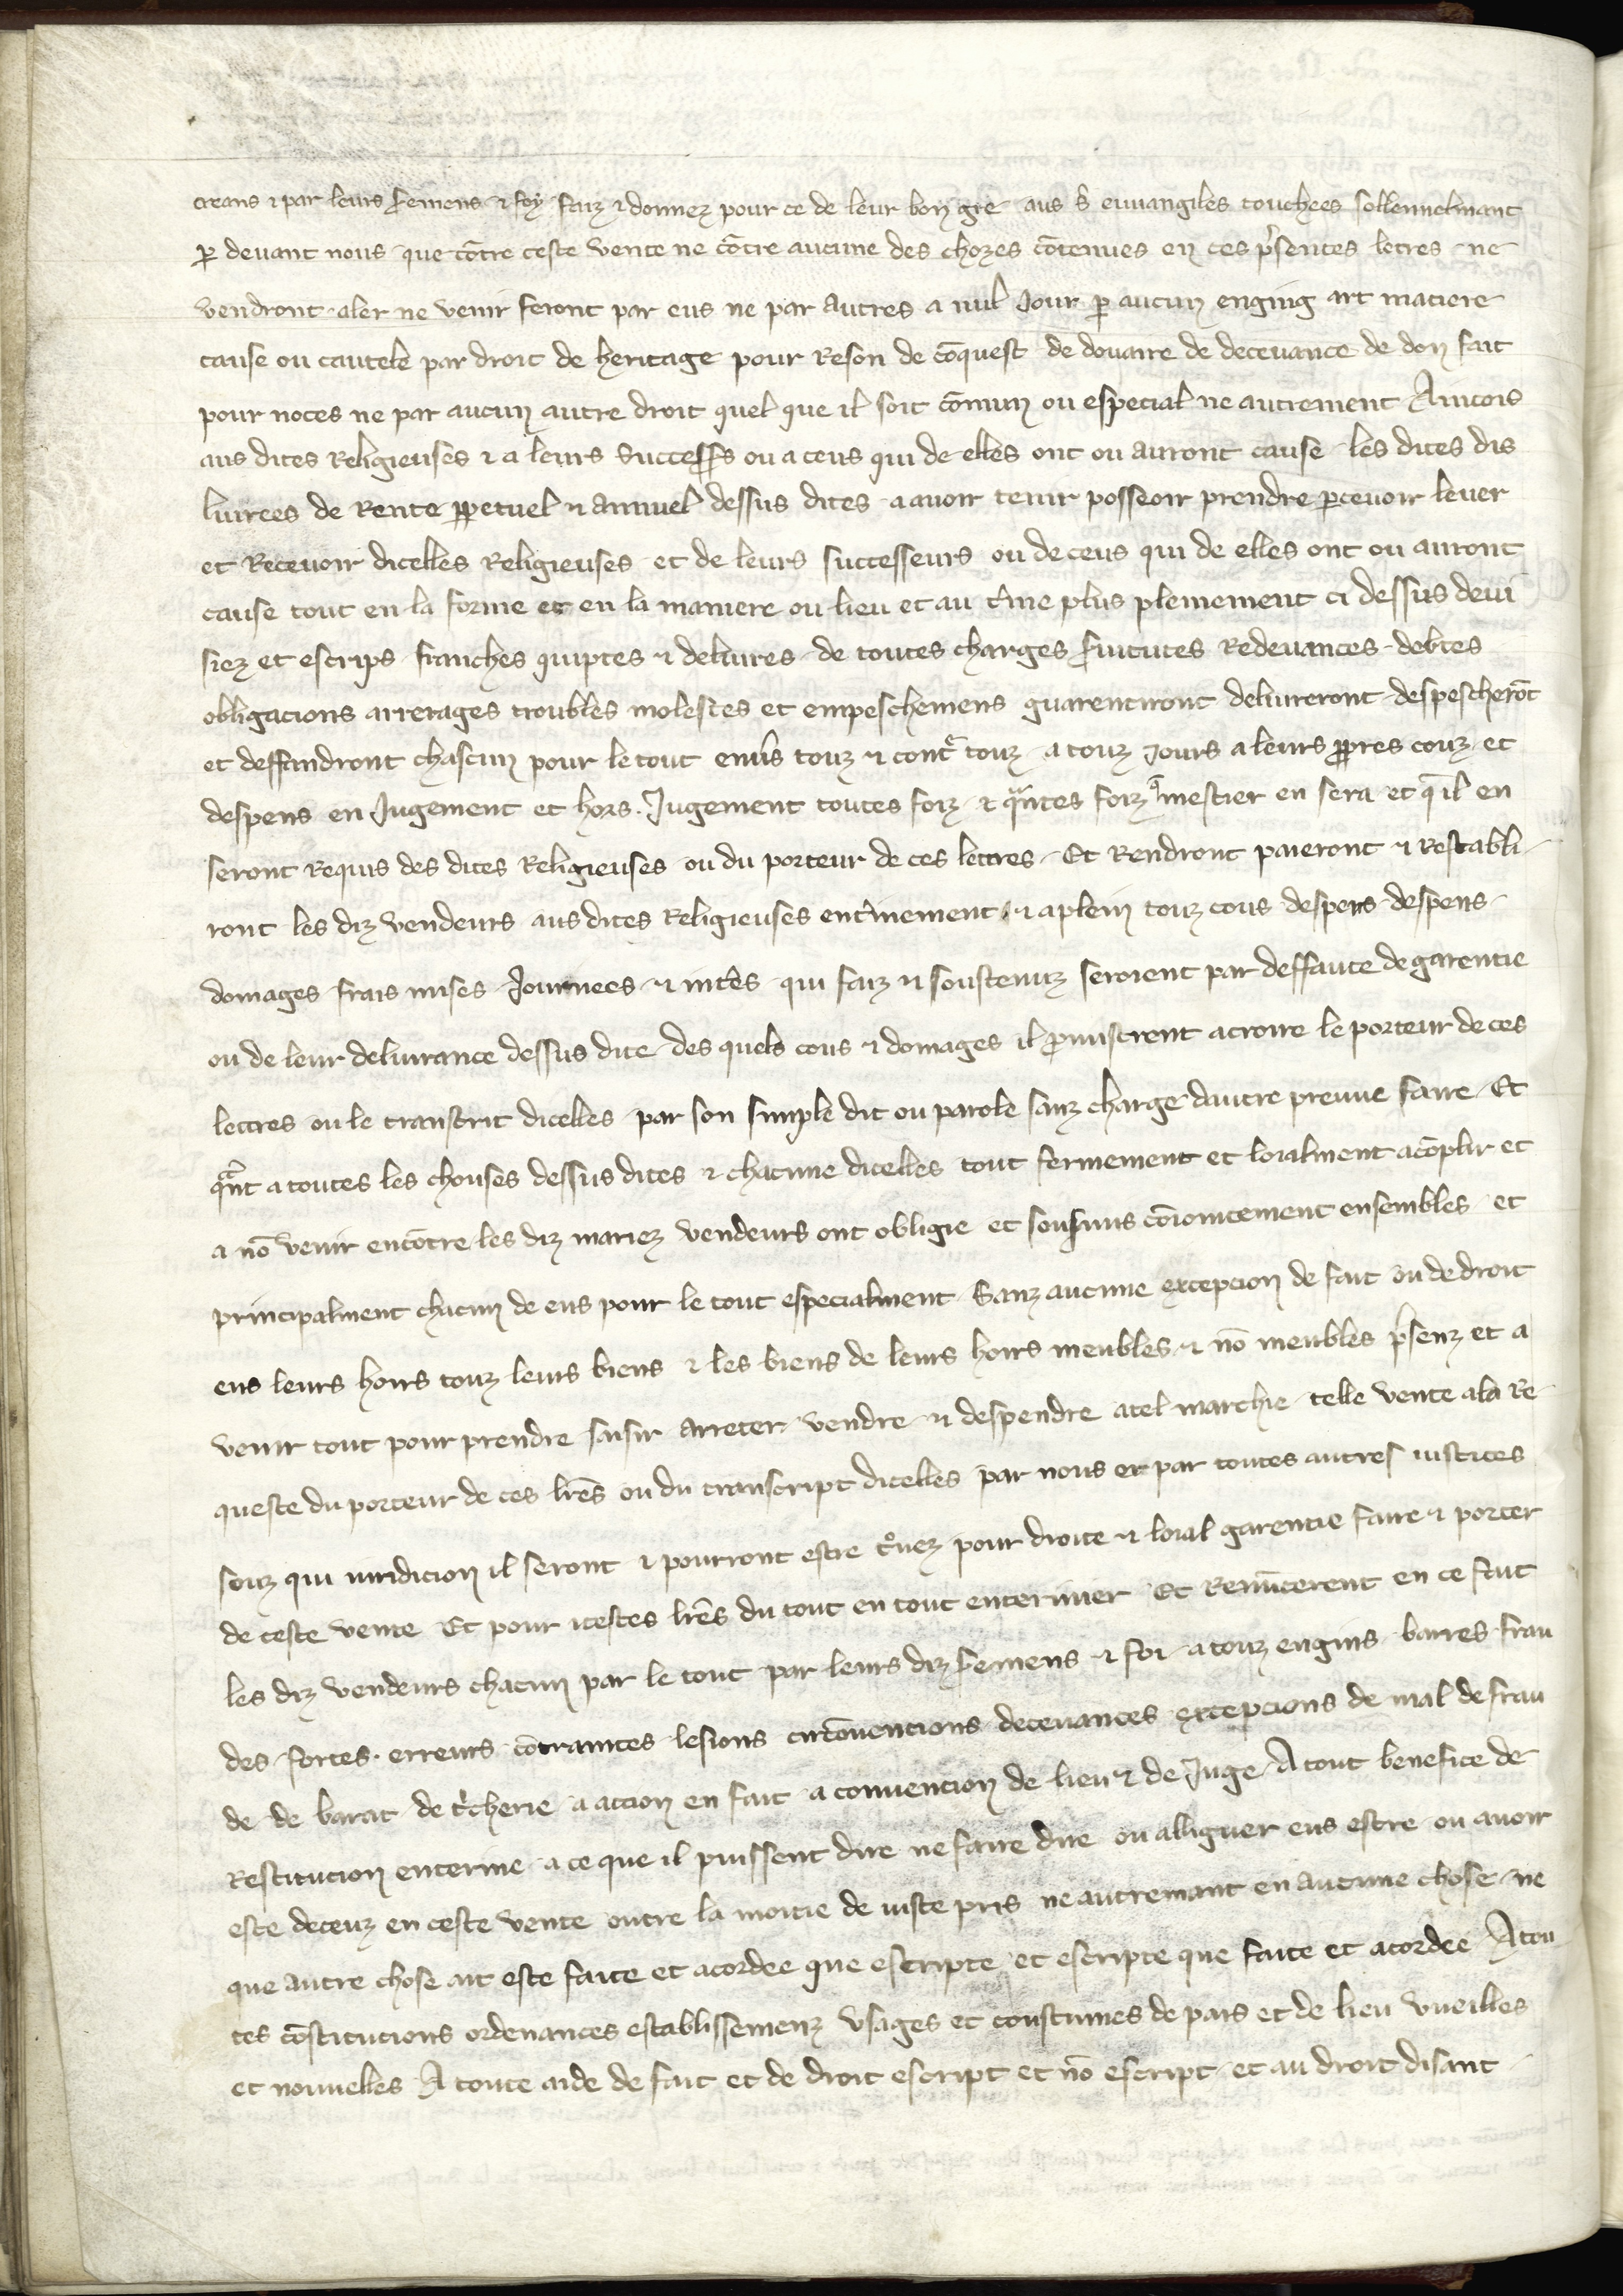 creans ⁊ par leurs s̾emens ⁊ foy faiz ⁊ donnez pour ce de leur bon gre aus s̃ euuangiles touchees sollennelmant
ꝑ deuant nous que cõtre ceste vente ne cõtre aucune des chozes cõtenues en ces p̃sentes letres ne
vendront aler ne venir feront par eus ne par autres a nul Jour ꝑ aucun enging art matiere
cause ou cautele par droit de heritage pour Reson de cõquest de douaire de deceuance de don fait
pour noces ne par aucun autre droit quel que il soit cõmun ou especial ne autrement Aincois
aus dites Religieuses ⁊ a leurs Success̾s ou a ceus qui de elles ont ou auront cause les dites dis
liurees de Rente ꝑpetuel ⁊ annuel dessus dites a auoir tenir posseoir prendre ꝑceuoir leuer
et Receuoir dicelles Religieuses et de leurs successeurs ou de ceus qui de elles ont ou auront
cause tout en la forme et en la maniere ou lieu et au t̾me plus plenement ci dessus deui
siez et escrips franches quiptes ⁊ deliures de toutes charges s̾uitutes Redeuances debtes
obligacions arrerages troubles molestes et empeschemens guarentiront deliureront despescherõt
et deffandront chascun pour le tout enu̾s touz ⁊ contͣ touz a touz Jours a leurs ꝓpres couz et
despens en Jugement et hors Jugement toutes foiz ⁊ qͣntes foiz mestier en sera et q̃ il en
seront Requis des dites Religieuses ou du porteur de ces lettres Et Rendront paieront ⁊ Restabli
ront les diz vendeurs aus dites Religieuses ent̾inement ⁊ a plein touz cous despens despens
domages frais mises Journees ⁊ int̾es qui faiz ⁊ soustenuz seroient par deffaute de garentie
ou de leur deliurance dessus dite des quels cous ⁊ domages il ꝓmistrent a croire le porteur de ces
lettres ou le transcrit dicelles par son simple dit ou parole sanz charge dautre preuue faire Et
qͣnt a toutes les chouses dessus dites ⁊ chacune dicelles tout fermement et loialment acõplir et
a nõ venir encõtre les diz mariez vendeurs ont obligie et sousmis cõiointement ensembles et
principalment chacun de eus pour le tout especialment Sanz aucune excepcion de fait ou de droit
eus leurs hoirs touz leurs biens ⁊ les biens de leurs hoirs meubles ⁊ nõ meubles p̃senz et a
venir tout pour prendre saisir arreter vendre ⁊ despendre a tel marchie telle vente a la Re
queste du porteur de ces lr̃es ou du transcript dicelles par nous et par toutes autres iustices
souz qui iuridicion il seront ⁊ pourront estre t̾uez pour droite ⁊ loial garentie faire ⁊ porter
de ceste vente Et pour icestes lr̃es du tout en tout enteriner Et Renũcerent en ce fait
les diz vendeurs chacun par le tout par leurs diz s̾emens ⁊ foi a touz engins barres frau
des fortes erreurs cõtraintes lesions circõuencions deceuances excepcions de mal de frau
de de barat de t̾cherie a accion en fait a conuencion de lieu ⁊ de Juge A tout benefice de
Restitucion enterine a ce que il puissent dire ne faire dire ou alliguer eus estre ou auoir
este deceuz en ceste vente outre la moitie de iuste pris ne autremant en aucune chose ne
que autre chose ait este faite et acordee que escripte et escripte que faite et acordee A tou
tes cõstitucions ordenances establissemenz vsages et coustumes de pais et de lieu vueilles
et nouuelles A toute aide de fait et de droit escript et nõ escript et au droit disant